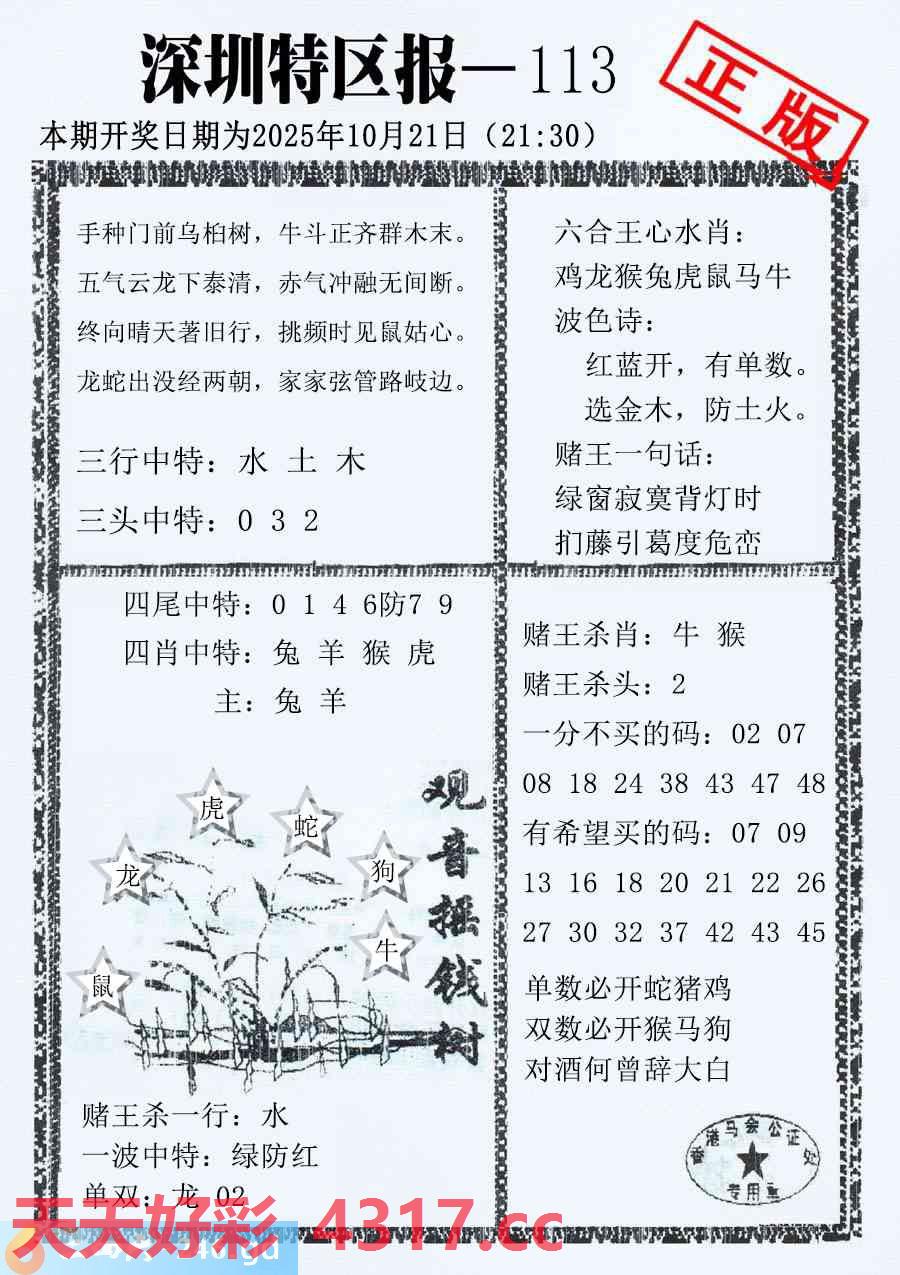 深圳特区报—113
正版
本期开奖日期为2025年10月21日（21:30）
手种门前乌桕树，牛斗正齐群木末。
五气云龙下泰清，赤气冲融无间断。
终向晴天著旧行，挑频时见鼠姑心。
龙蛇出没经两朝，家家弦管路岐边。
三行中特：水 土 木
三头中特：0 3 2
六合王心水肖：
鸡龙猴兔虎鼠马牛
波色诗：
红蓝开，有单数。
选金木，防土火。
赌王一句话：
绿窗寂寞背灯时
扪藤引葛度危峦
四尾中特：0 1 4 6防7 9
四肖中特：兔 羊 猴 虎
主：兔 羊
观音摇钱树
虎
蛇
龙
狗
牛
鼠
赌王杀一行：水
一波中特：绿防红
单双：龙 02
赌王杀肖：牛 猴
赌王杀头：2
一分不买的码：02 07
08 18 24 38 43 47 48
有希望买的码：07 09
13 16 18 20 21 22 26
27 30 32 37 42 43 45
单数必开蛇猪鸡
双数必开猴马狗
对酒何曾辞大白
香港马会公证处
专用章
天天好彩 4317.cc